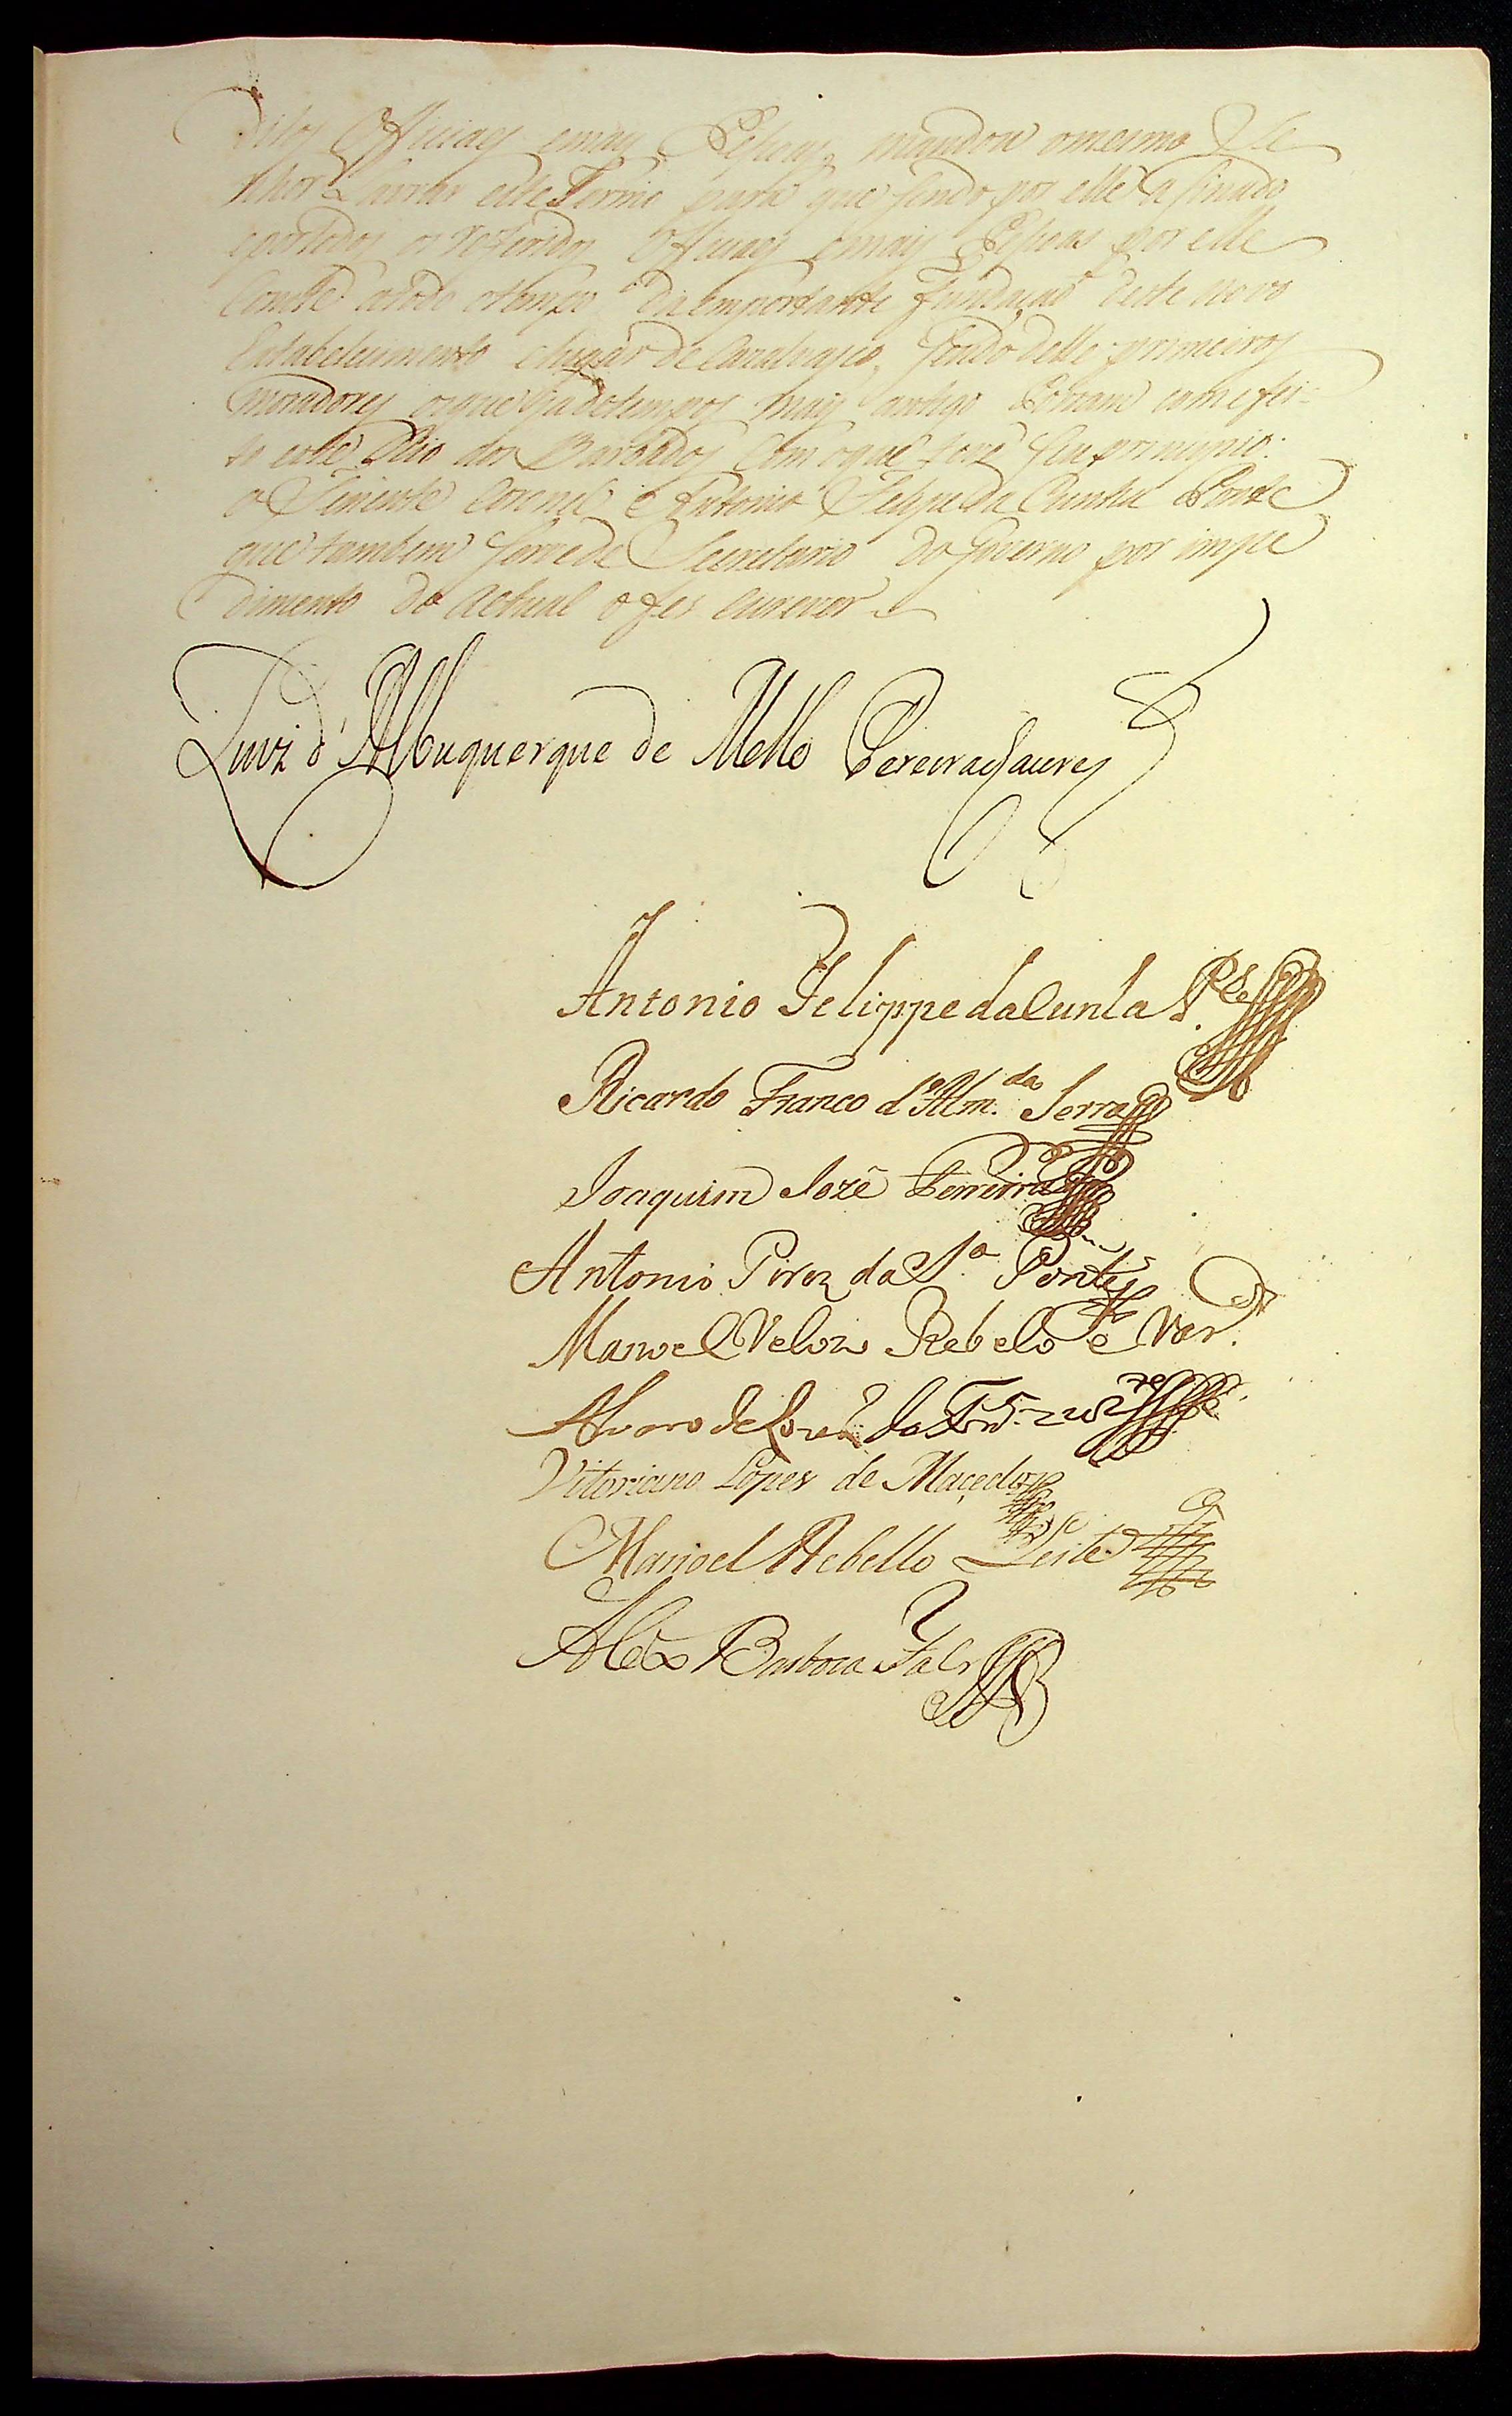 Ditos Officiaes emais Pesoas, mandou omesmo Se
nhor Lavrar este Termo para que sendo por elle asinado
eportodos os referidos Officiaes emais Pesoas por elle
Conste atodo otempo da emportante fundação deste novo
Estabelecimento elugar de Cazalvasco, sendo delle primeiros
moradores os que já detempos mais antigo
so este Sitio dos Barbados com oque teve seu principio:
o Tenente Coronel Antonio Felipe da Cunha Ponte
que tambem serve de Secretario do Governo por impe
dimento do actual o fes escrever
Luiz d'Albuquerque de Mello Pereira eCaceres
Antonio Felippe daCunha P.te
Ricardo Franco d'Alm.da Serra
Joaquim Jozé Ferreira
Antonio Pires da S.a Pontes
Manoel Velozo Rebelo e Vas.
Alvaro de
Vitoriano Lopes de Macedo
Manoel Rebello Leite
Barboza